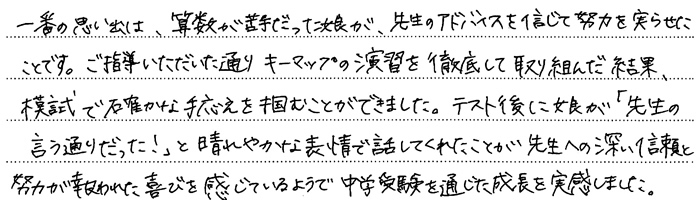 一番の思い出は、算数が苦手だった娘が、先生のアドバイスを信じて努力を実らせた
ことです。ご指導いただいた通りキーマップの演習を徹底して取り組んだ結果、
模試で確かな手応えを掴むことができました。テスト後に娘が「先生の
言う通りだった!」と晴れやかな表情で話してくれたことが先生への深い信頼と
努力が報われた喜びを感じているようで中学受験を通じた成長を実感しました。